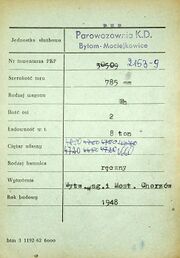 Jednostka służbowa
Parowozownia K.D.
Bytom-Maciejkowice
Nr inwentarza PKP 2153-9
Szerokość toru 785 mm
Rodzaj wagonu Hh
Ilość osi 2
Ładowność w t 8 ton
Ciężar własny
Rodzaj hamulca ręczny
Wytwórnia Wytw. Wag. i Most. Chorzów
Rok budowy 1948